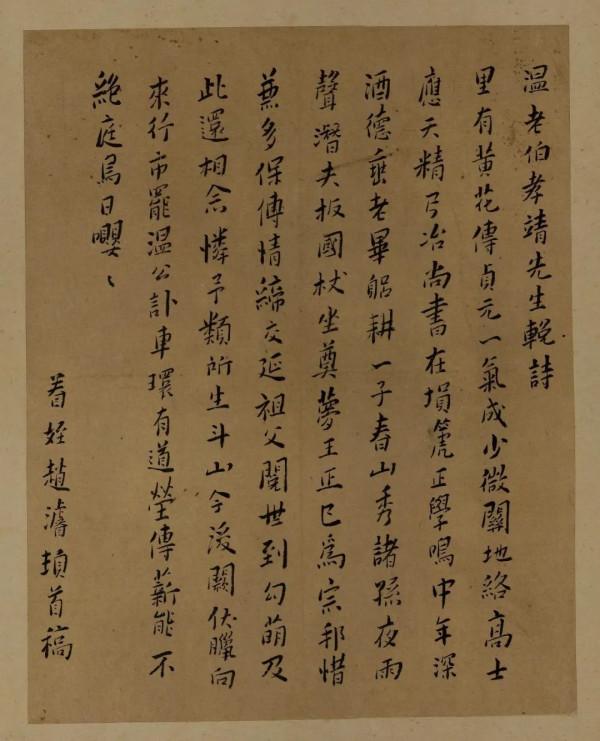 温老伯孝靖先生輓詩
里有黄花傳貞元一氣成少微關地絡高士
應天精弓冶尚書在塤箎正學鳴中年深
酒德垂老畢躬耕一子春山秀諸孫夜雨
聲潛夫扳國杖坐奠夢王正已為宗邦惜
兼多保傅情締交延祖父閱世到勾萌及
此還相念憐予類所生斗山今後闕伏臘向
來行市罷温公訃車環有道塋傳薪能不
絶庭舄日嚶〻
眷姪趙濬頓首稿